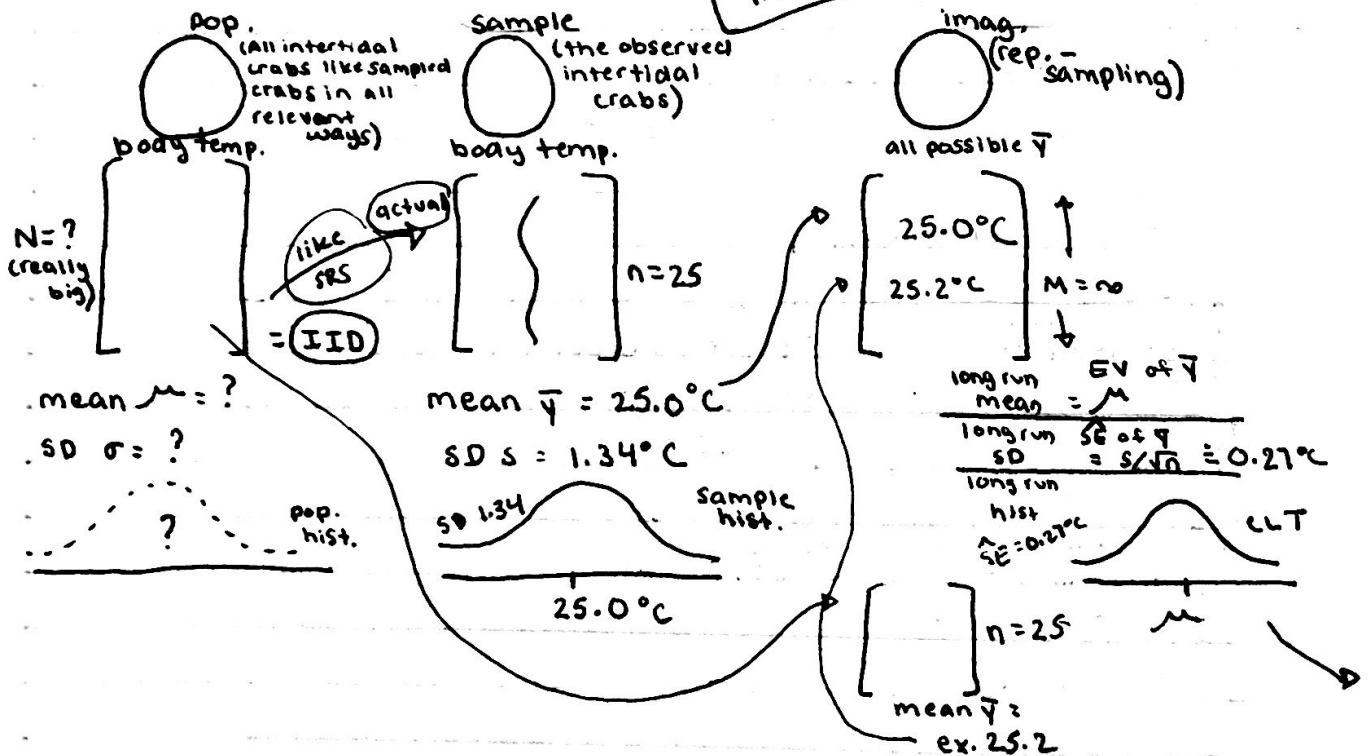 pop.
(All intertidal
crabs like sampled
crabs in all
relevant
ways)
body temp.
N=?
(really
big)
like
SRS
actual
= IID
mean μ = ?
SD σ = ?
?
pop.
hist.
sample
(the observed
intertidal
crabs)
body temp.
n=25
mean ȳ = 25.0°C
SD s = 1.34°C
SD 1.34
sample
hist.
25.0°C
imag.
(rep.-
sampling)
all possible ȳ
25.0°C
25.2°C
M = ∞
long run
mean
EV of ȳ
= μ
long run
SD
ŜE of ȳ
= s/√n ≐ 0.27°C
long run
hist
ŜE=0.27°C
CLT
μ
n=25
mean ȳ =
ex. 25.2